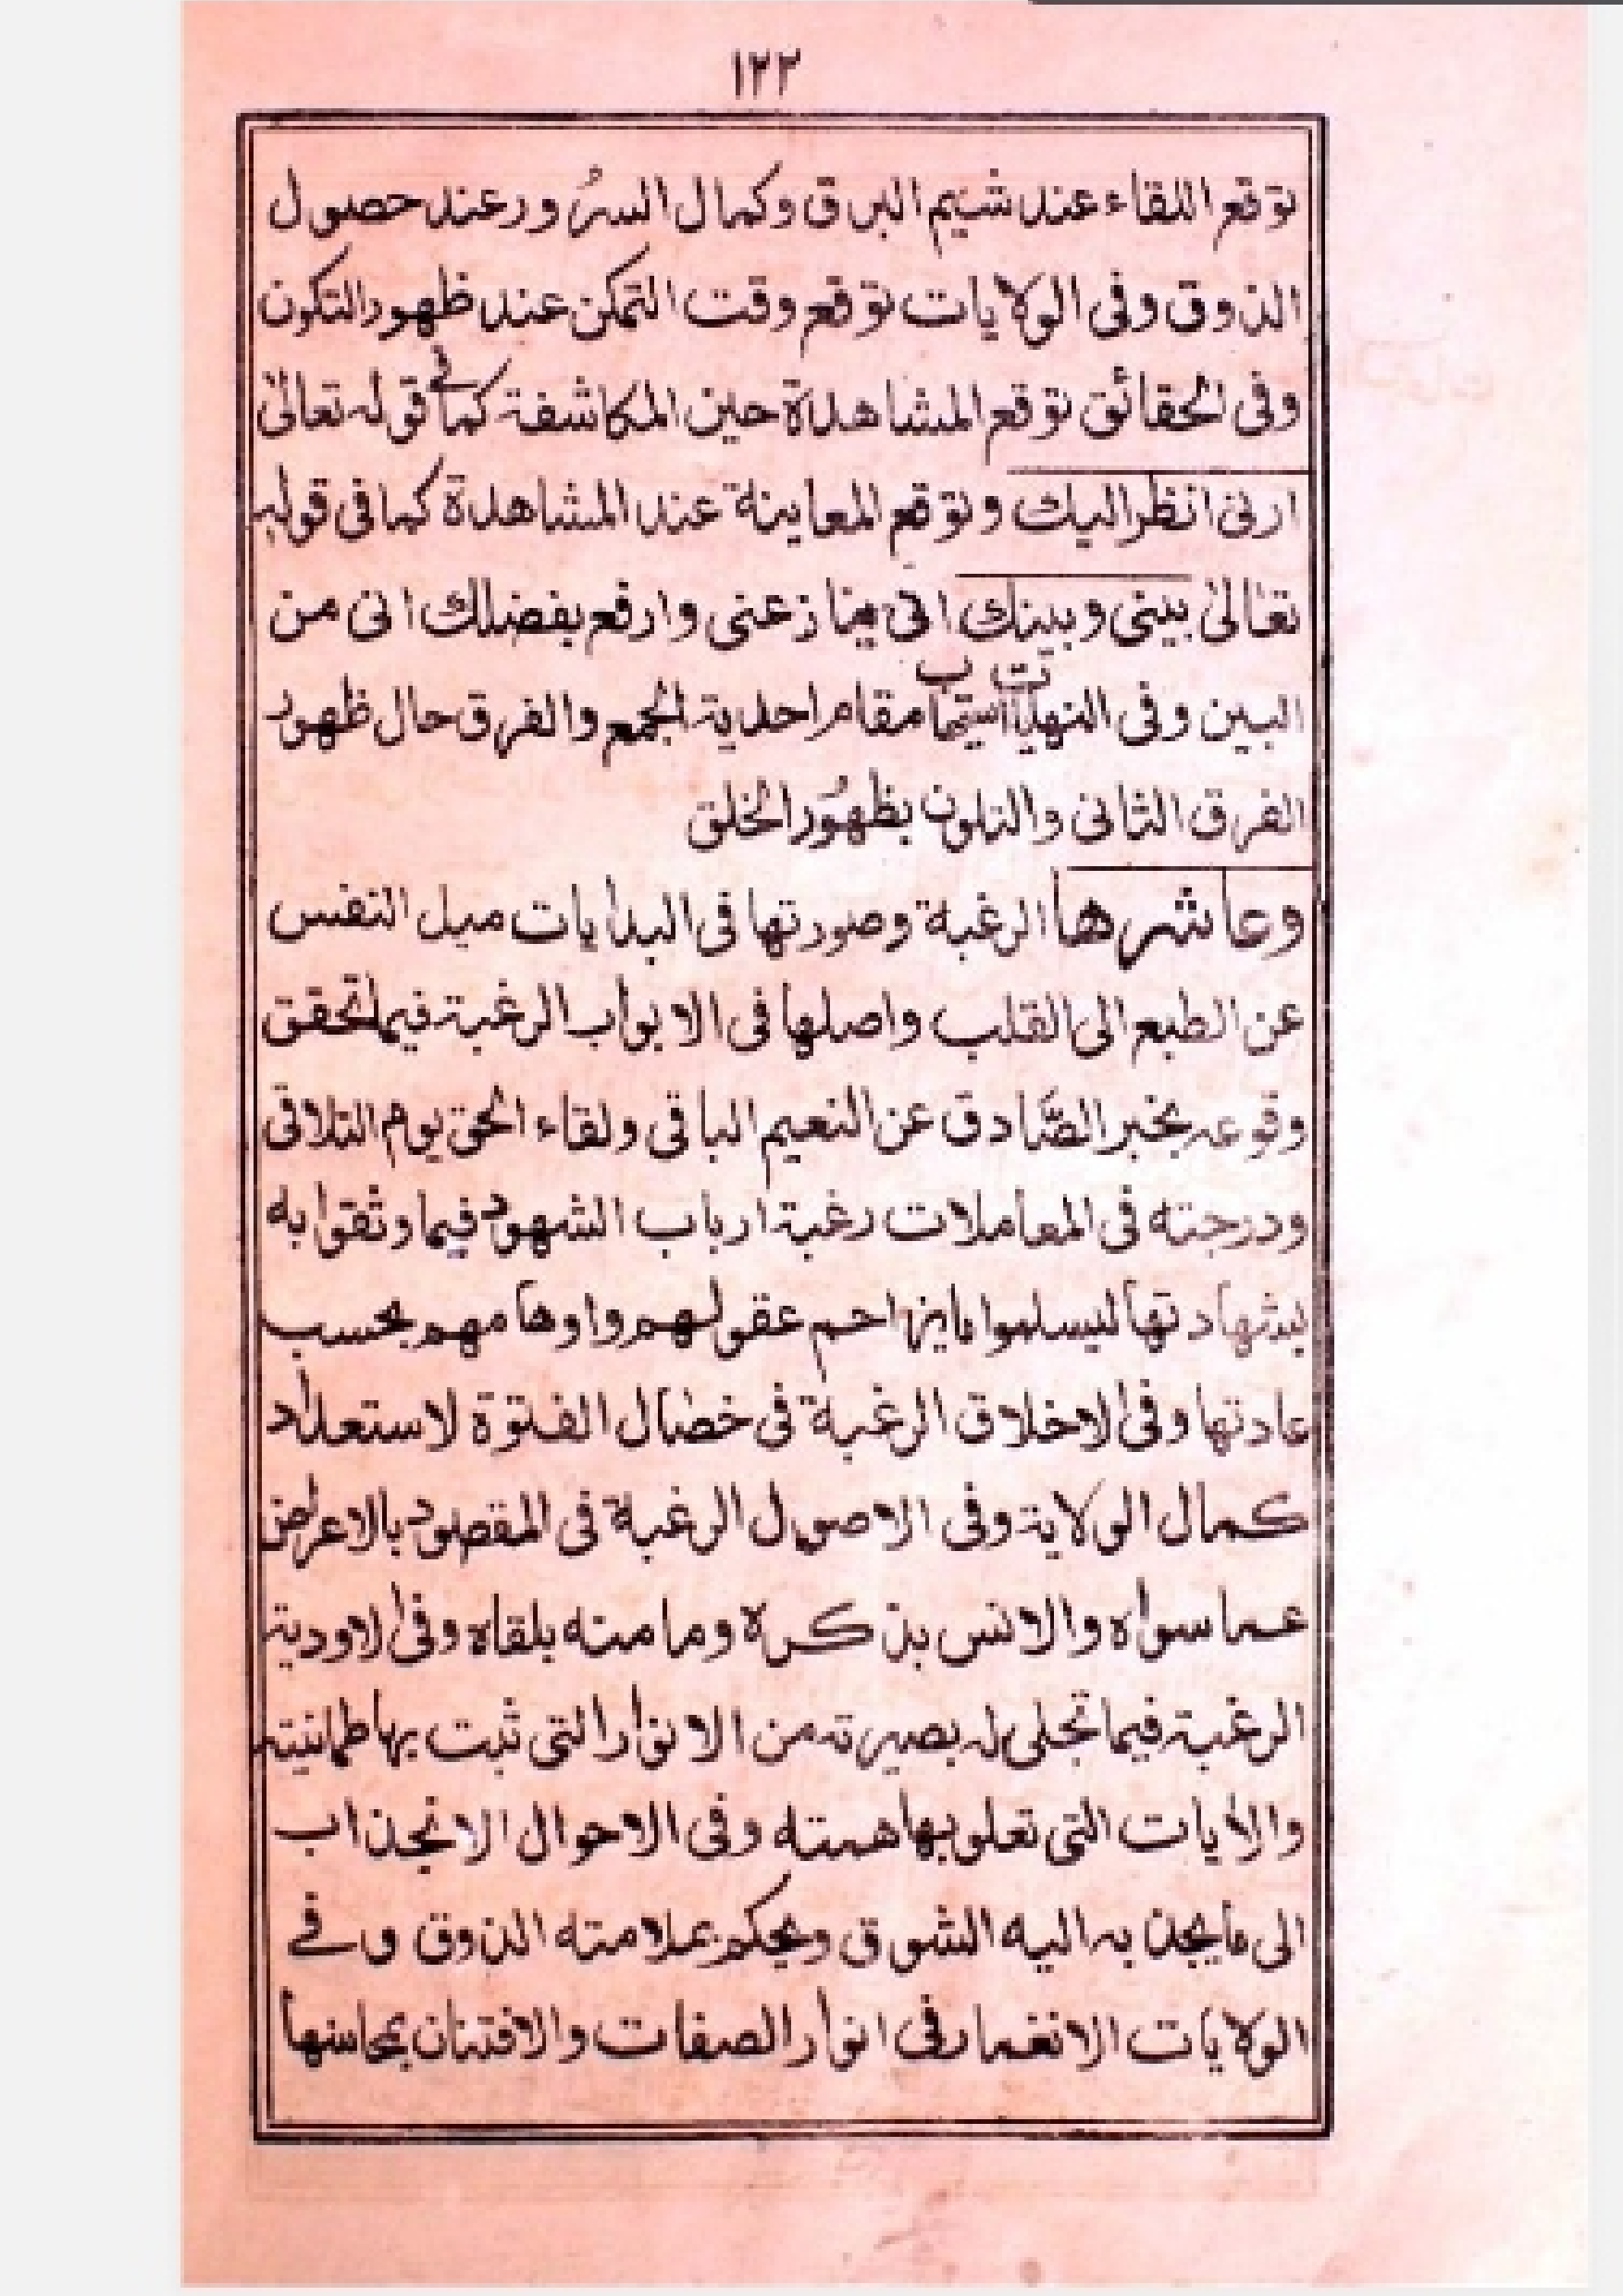 ١٢٢
توقع اللقاء عند شيم البرق وكمال السرُور عند حصول
الذوق وفى الولايات توقع وقت التمكن عند ظهور التكون
وفى الحقائق توقع المشاهدة حين المكاشفة كما فى قوله تعالىٰ
ارنى انظر اليك وتوقع المعاينة عند المشاهدة كما فى قوله
تعالىٰ بينى وبينك انى ينازعنى وارفع بفضلك انى من
البين وفى النهايات سيما مقام احدية الجمع والفرق حال ظهور
الفرق الثانى والتلون بظهُور الخلق
وعاشرها الرغبة وصورتها فى البدايات ميل النفس
عن الطبع الى القلب واصلها فى الابواب الرغبة فيما تحقق
وقوعه بخبر الصَّادق عن النعيم الباقى ولقاء الحق يوم التلاقى
ودرجته فى المعاملات رغبة ارباب الشهود فيما وثقوا به
بشهادتها ليسلموا مايزاحم عقولهم واوهامهم بحسب
عادتها وفى الاخلاق الرغبة فى خصال الفتوة لاستعداد
كمال الولاية وفى الاصول الرغبة فى المقصود بالاعراض
عما سواه والانس بذكره وما منه بلقاه وفى الاودية
الرغبة فيما تجلى له بصيرته من الانوار التى ثبت بها طمانينته
والايات التى تعلو بها همته وفى الاحوال الانجذاب
الى مايجذبه اليه الشوق ويحكم بملامته الذوق وفى
الولايات الانغمار فى انوار الصفات والافتنان بمحاسنها